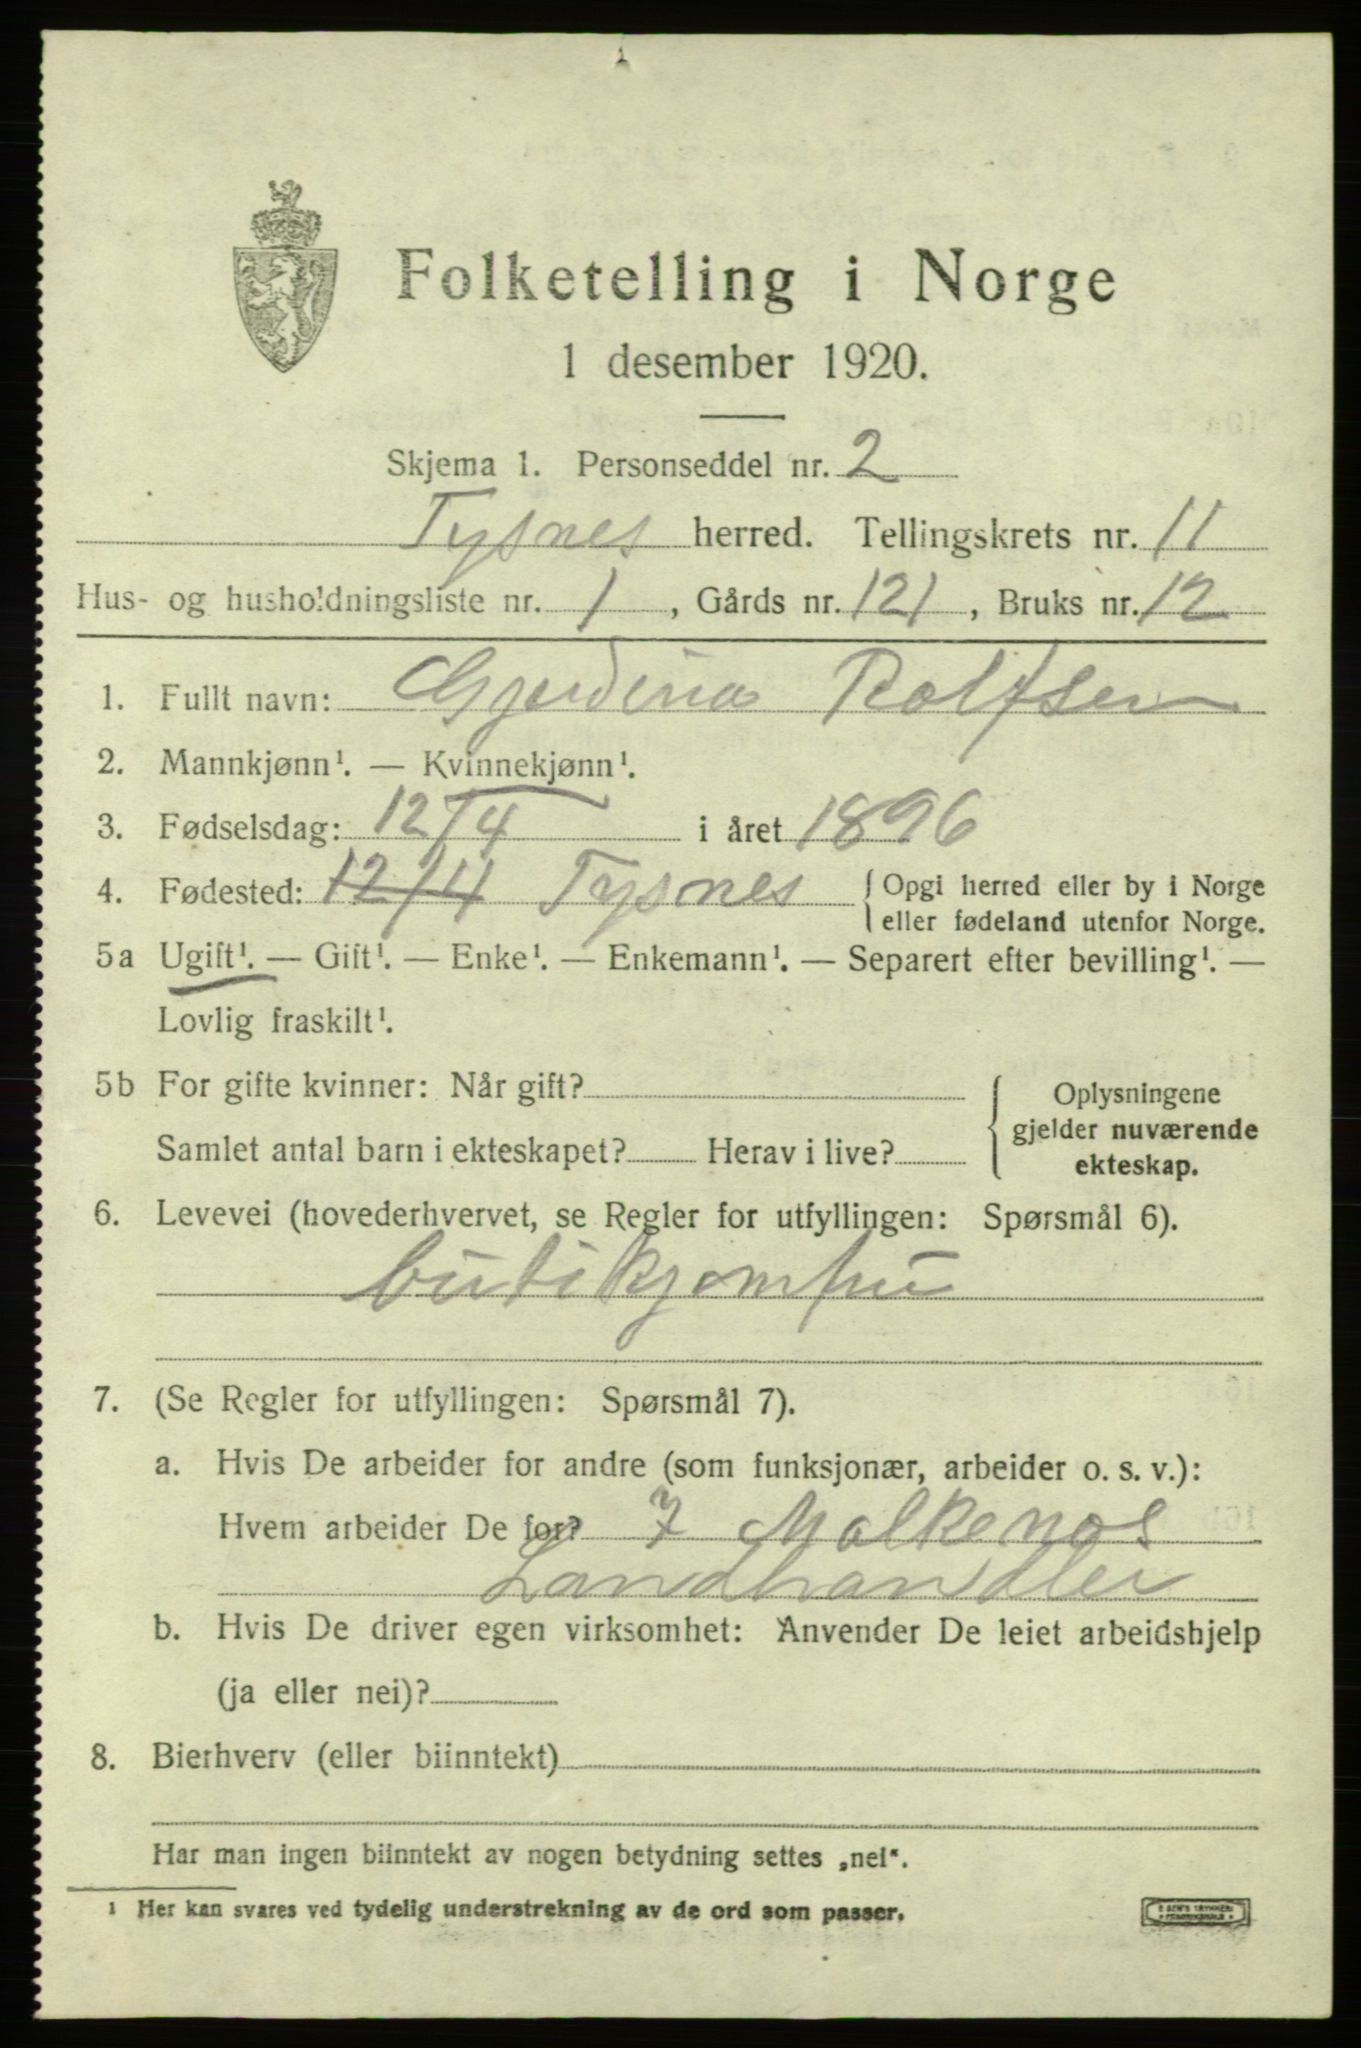 Folketelling i Norge
1 desember 1920.
Skjema 1. Personseddel nr. 2
Tysnes herred. Tellingskrets nr. 11
Hus- og husholdningsliste nr. 1, Gårds nr. 121, Bruks nr. 12
1. Fullt navn: Gjerdina Rolfsen
2. Mannkjønn¹. — Kvinnekjønn¹.
3. Fødselsdag: 12/4 i året 1896
4. Fødested: 12/4 Tysnes { Opgi herred eller by i Norge
eller fødeland utenfor Norge.
5a Ugift¹. — Gift¹. — Enke¹. — Enkemann¹. — Separert efter bevilling¹. —
Lovlig fraskilt¹.
5b For gifte kvinner: Når gift?
Samlet antal barn i ekteskapet? Herav i live?
{ Oplysningene
gjelder nuværende
ekteskap.
6. Levevei (hovederhvervet, se Regler for utfyllingen: Spørsmål 6).
butikjomfru
7. (Se Regler for utfyllingen: Spørsmål 7).
a. Hvis De arbeider for andre (som funksjonær, arbeider o. s. v.):
Hvem arbeider De for?
Landhandler
b. Hvis De driver egen virksomhet: Anvender De leiet arbeidshjelp
(ja eller nei)?
8. Bierhverv (eller biinntekt)
Har man ingen biinntekt av nogen betydning settes „nei“.
¹ Her kan svares ved tydelig understrekning av de ord som passer.